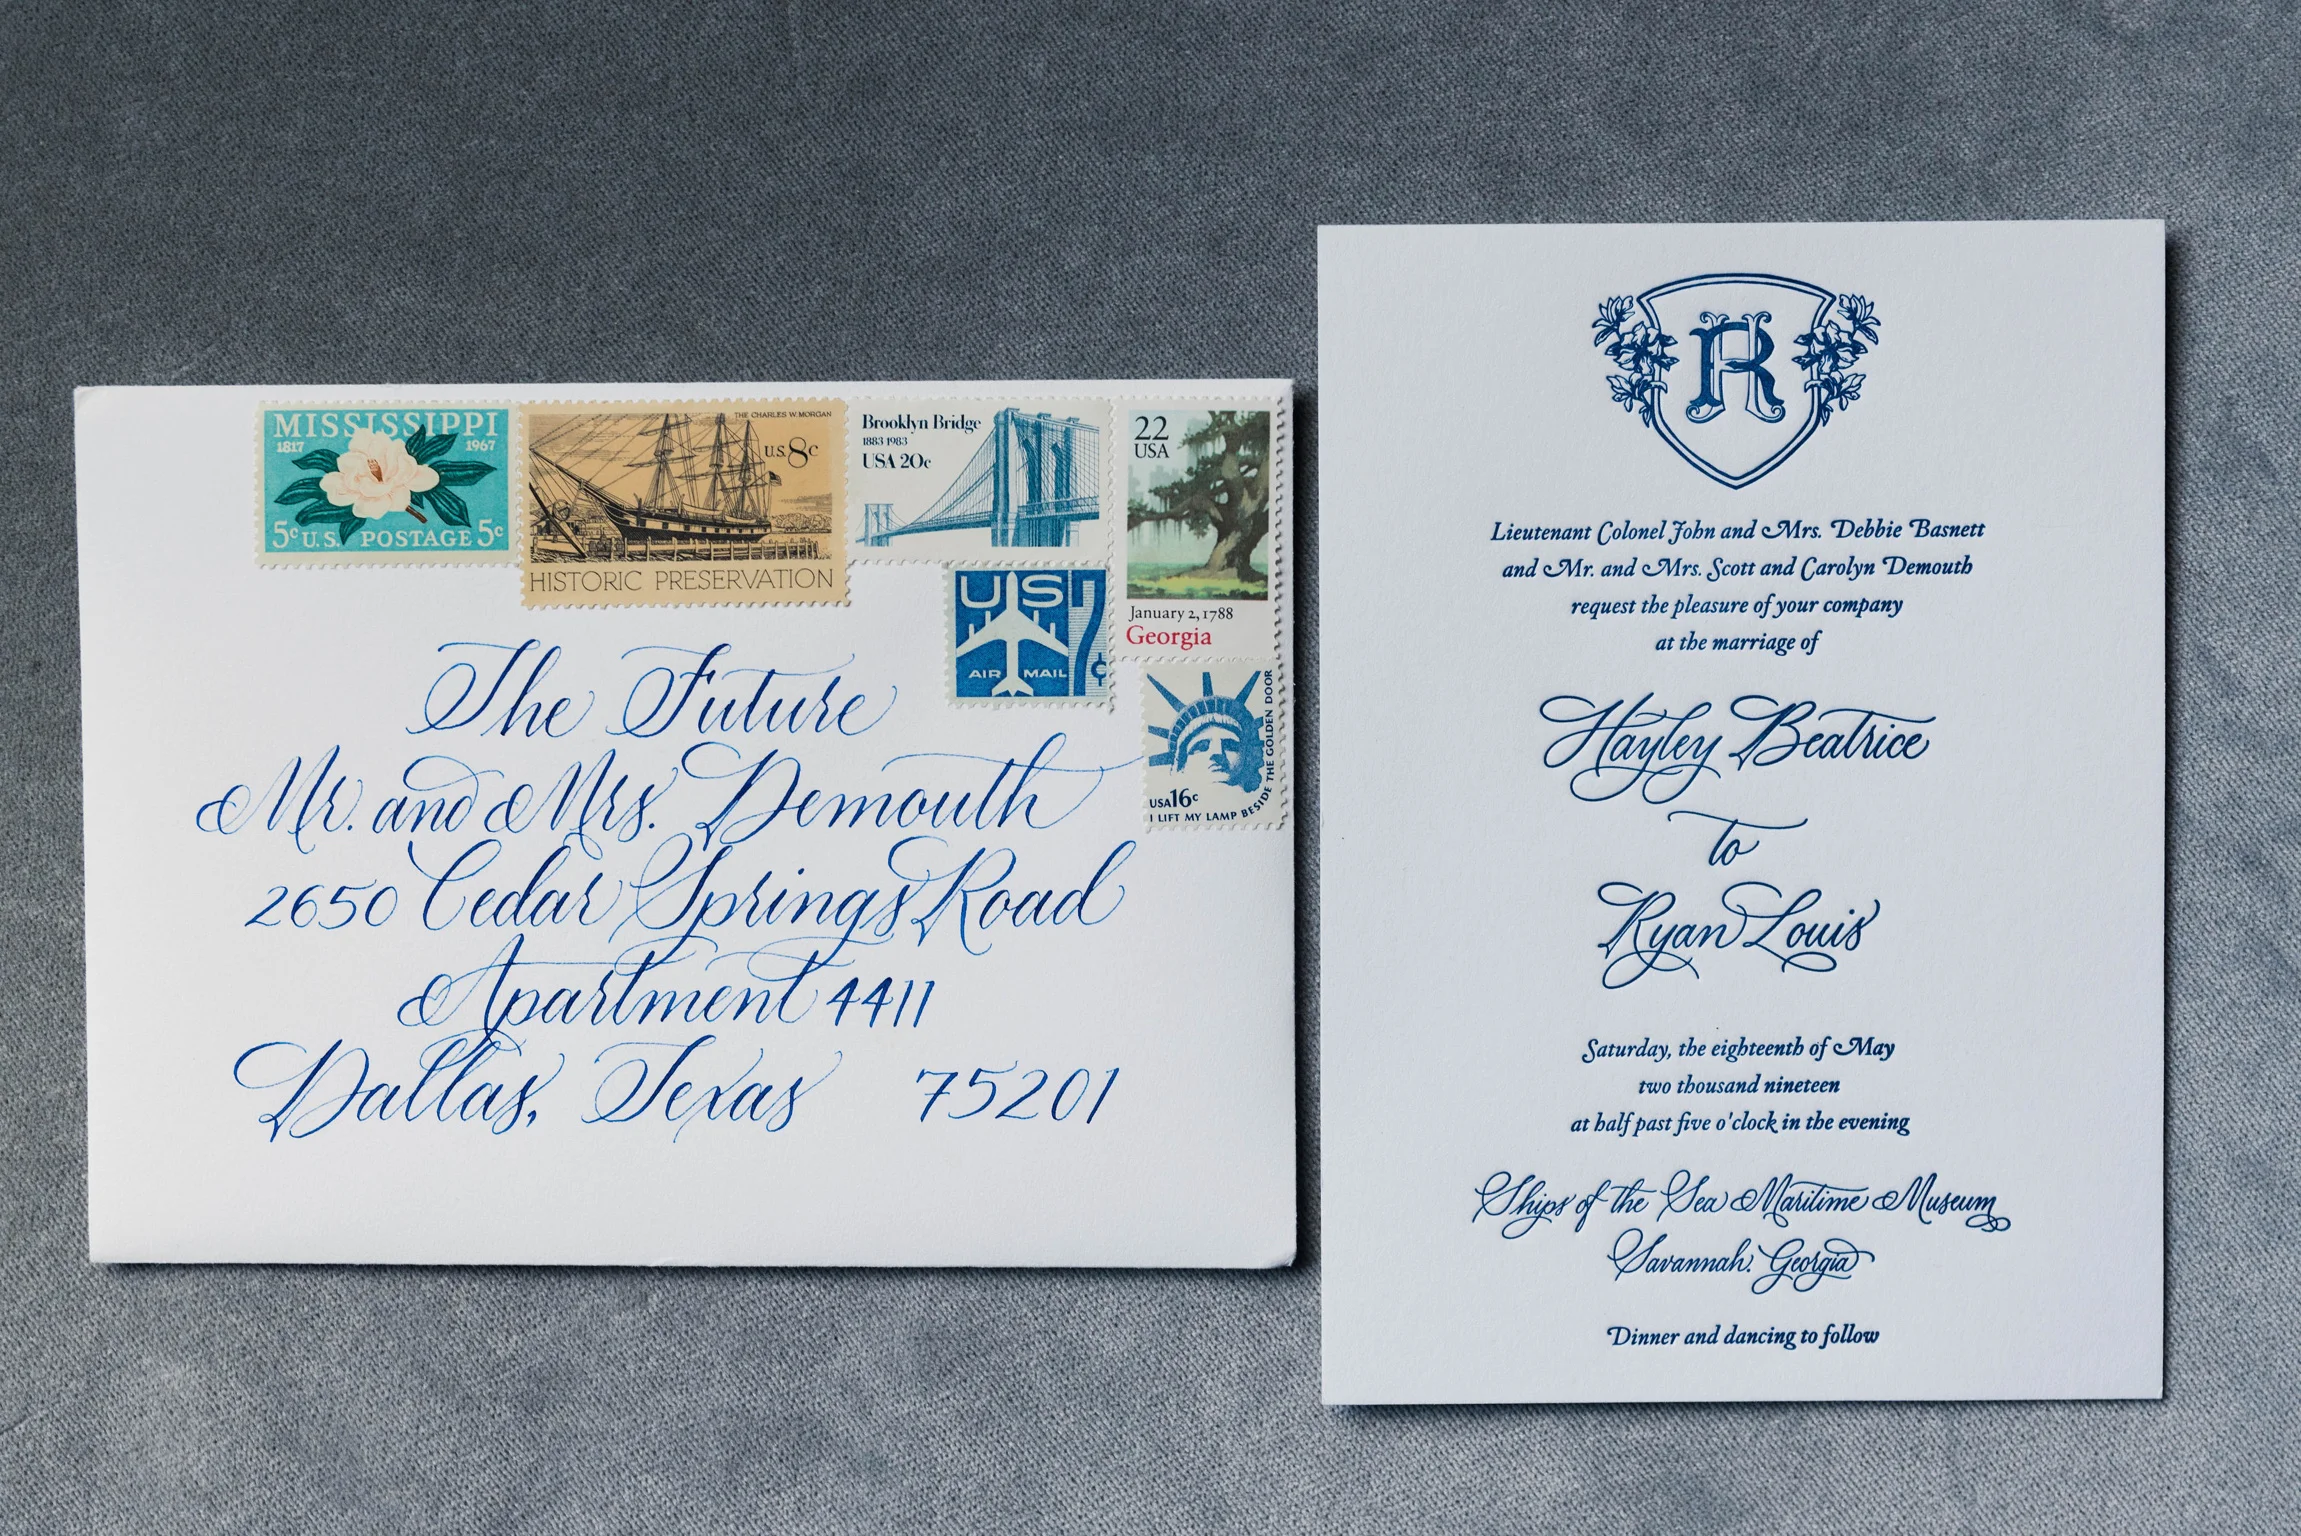 MISSISSIPPI
1817 1967
5c U.S. POSTAGE 5c
THE CHARLES W. MORGAN
U.S. 8c
HISTORIC PRESERVATION
Brooklyn Bridge
1883 1983
USA 20c
22
USA
January 2, 1788
Georgia
US 7c
AIR MAIL
USA 16c
I LIFT MY LAMP BESIDE THE GOLDEN DOOR
The Future
Mr. and Mrs. Demouth
2650 Cedar Springs Road
Apartment 4411
Dallas, Texas 75201
HR
Lieutenant Colonel John and Mrs. Debbie Basnett
and Mr. and Mrs. Scott and Carolyn Demouth
request the pleasure of your company
at the marriage of
Hayley Beatrice
to
Ryan Louis
Saturday, the eighteenth of May
two thousand nineteen
at half past five o'clock in the evening
Ships of the Sea Maritime Museum
Savannah, Georgia
Dinner and dancing to follow